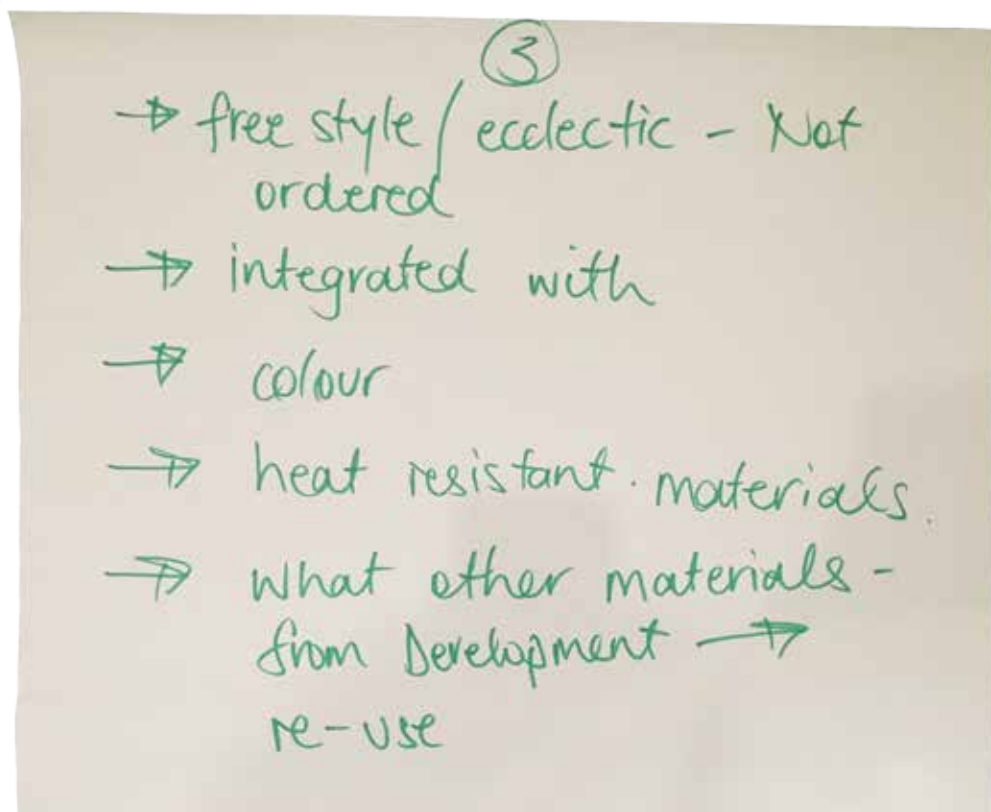 ③
→ free style / ecclectic - Not
ordered
→ integrated with
→ colour
→ heat resistant. materials.
→ what other materials -
from Development →
re-use